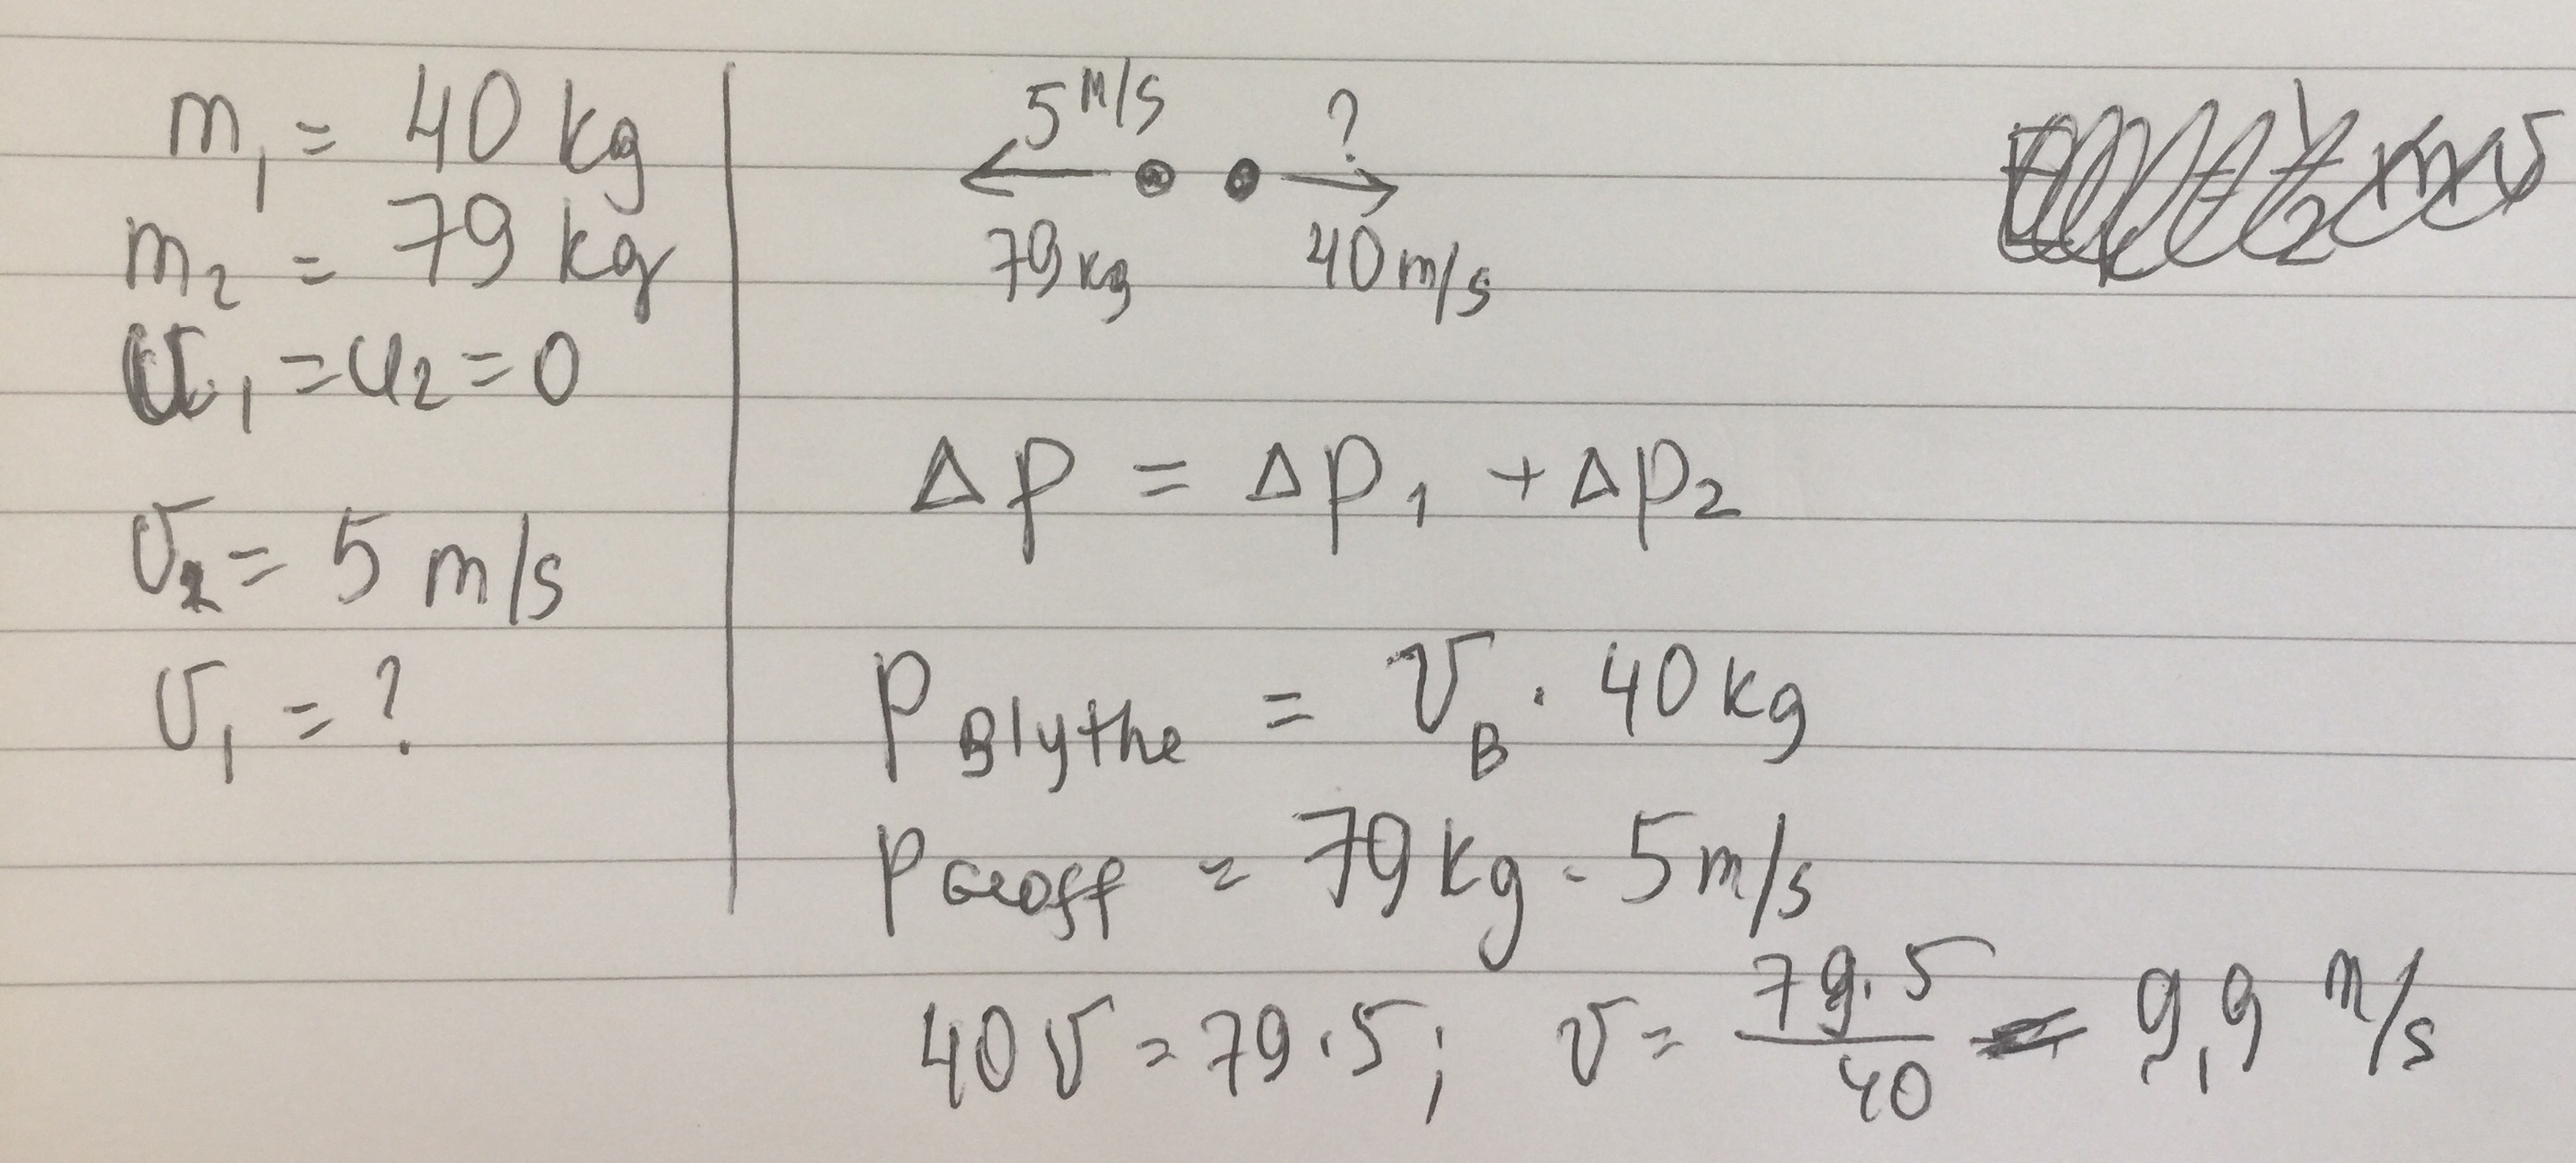 m₁ = 40 kg
m₂ = 79 kg
u₁ = u₂ = 0
v₂ = 5 m/s
v₁ = ?
5 m/s ?
79 kg 40 m/s
Δp = Δp₁ + Δp₂
P Blythe = v_B · 40 kg
P Geoff = 79 kg · 5 m/s
40 v = 79 · 5 ; v = 79·5/40 = 9,9 m/s